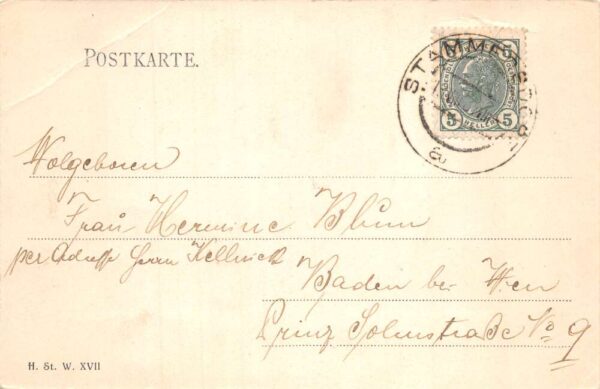 POSTKARTE.
5 5
HELLER
Wolgeboren
Frau Hermine Blum
per Adresse Herrn
Baden bei Wien
Prinz Solmstraße No 9
H. St. W. XVII